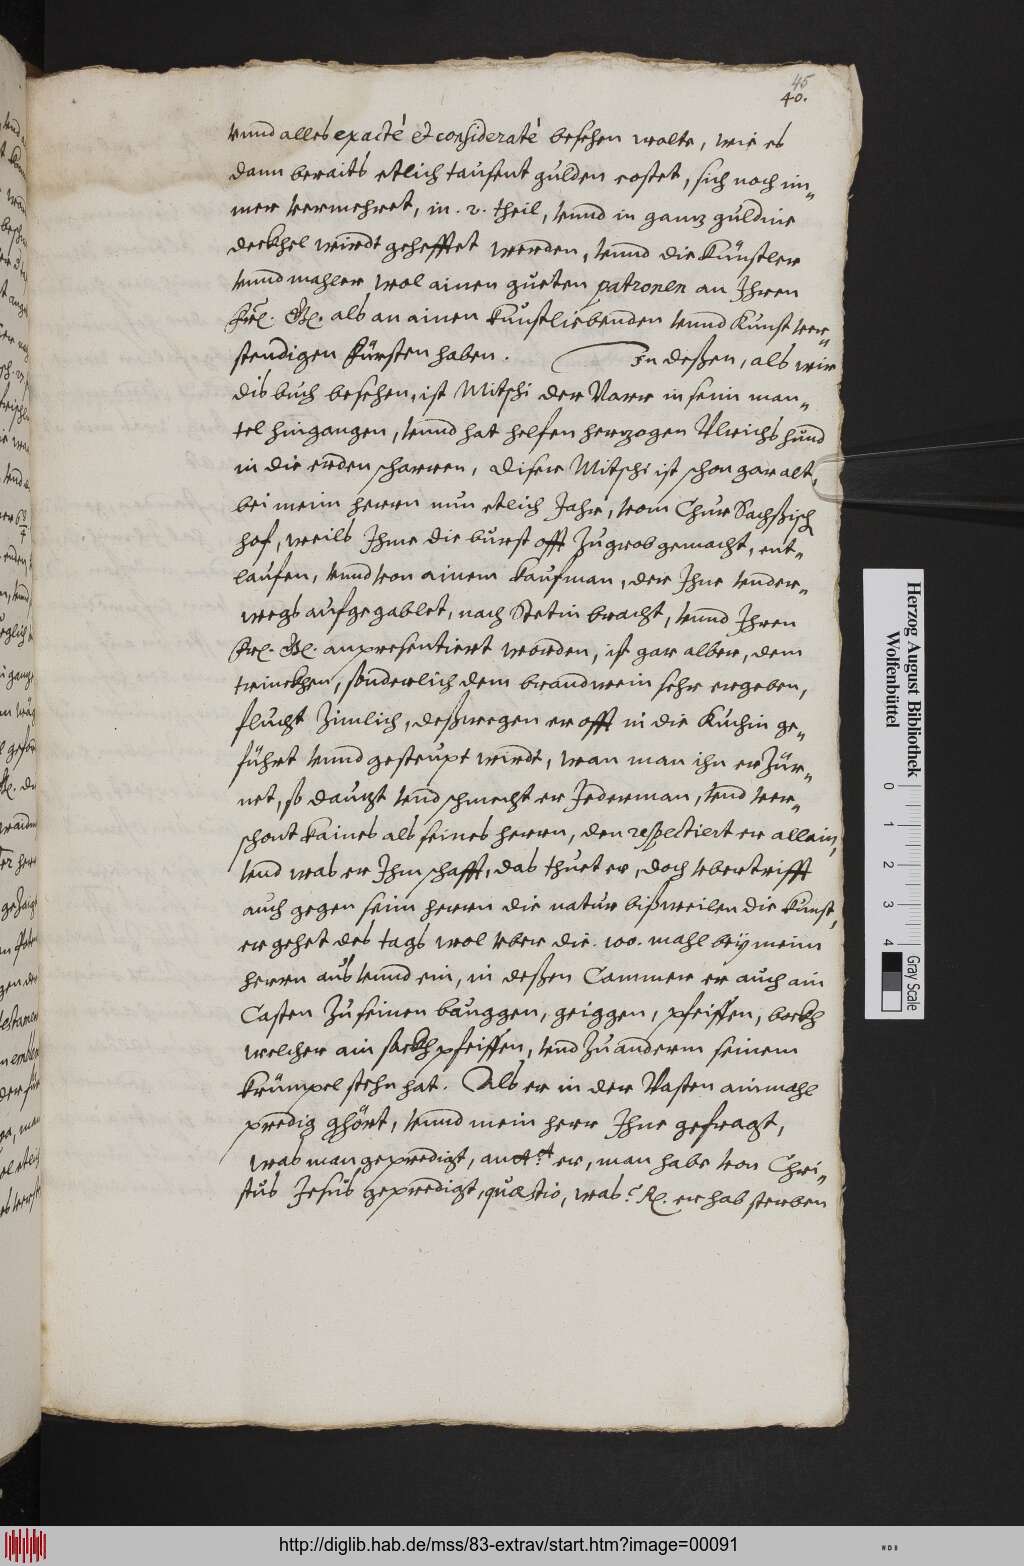 45
40.
vnnd alles exacté et consideraté besehen wolte, wie es
dann beraits etlich tausent gulden costet, sich noch im„
mer vermehret, in .2. theil, vnnd in gantz guldine
deckhel wirdt gehefftet werden, vnnd die Künstler
vnnd mahler wol ainen gueten patronen an Ihren
Frl. Gl. als an ainen kunstliebenden vnnd Kunst ver„
stendigen Fürsten haben. In deßen, als wir
dis buch besehen, ist Mitschi der Narr in seim man„
tel hingangen, vnnd hat helfen hertzogen Vlrichs hund
in die erden scharren, diser Mitschi ist schon gar alt,
bei meim herrn nun etlich Jahr, vom Chur Sachßisch
hof, weils Ihme die burst offt zu grob gemacht, ent„
laufen, vnnd von ainem kaufman, der Ihne vnder„
wegs aufgegablet, nach Stetin bracht, vnnd Ihren
Frl. Gl. anpresentiert worden, ist gar alber, dem
trinckhen, sonderlich dem brandwein sehr ergeben,
flucht zimlich, deßwegen er offt in die Kuchin ge„
führt vnnd gesteupt wirdt, wan man ihn erzür„
net, so dautzt vnd schmecht er Jederman, vnd ver„
schont kaines als seines herrn, den respectiert er allain,
vnd was er Ihm schafft, das thuet er, doch vbertrifft
auch gegen seim herrn die natur bißweilen die kunst,
er gehet des tags wol vber die .100. mahl bey meim
herrn aus vnnd ein, in deßen Cammer er auch ain
Casten zu seinen bauggen, geiggen, pfeiffen, bockh
welcher ain sackhpfeiffen, vnd zu anderm seinem
krümpel stehn hat. Als er in der Vasten ainmahl
predig ghört, vnnd mein herr Ihne gefragt,
was man gepredigt, antt: er, man habe von Chri„
stus Jesus gepredigt, quæstio, was? R. er hab sterben
Herzog August Bibliothek
Wolfenbüttel
0 1 2 3 4
Gray Scale
http://diglib.hab.de/mss/83-extrav/start.htm?image=00091
WDB